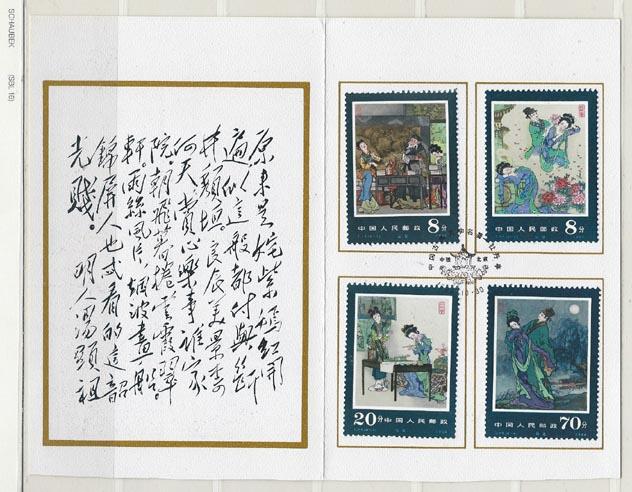 SCHAUBEK (SBL 10)
原来是姹紫嫣红開
遍似這般都付與斷
井頹垣。良辰美景奈
何天賞心樂事誰家
院。朝飛暮捲雲霞翠
軒。雨絲風片烟波畫船。
錦屏人也忒看的這韶
光賤。明人湯顯祖
中国人民邮政 8分
中国人民邮政 8分
20分 中国人民邮政
中国人民邮政 70分